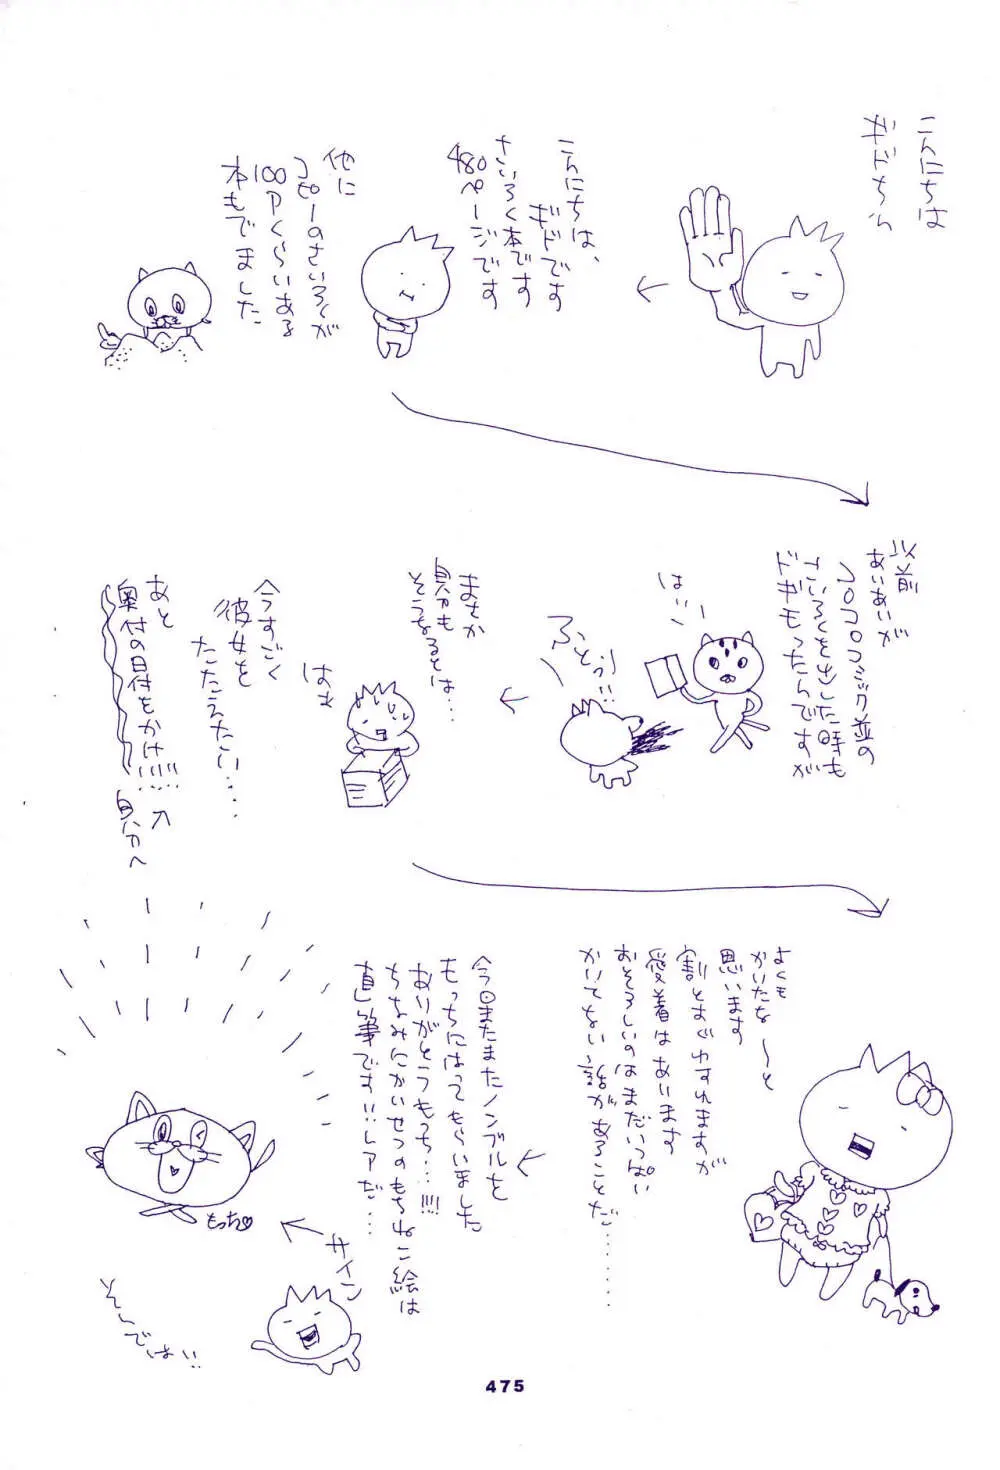 こんにちは
ギドちん
こんにちは、
ギドです
さいろく本です
480ページです
他に
コピーのさいろくが
100Pくらいある
本もでました
以前
あいあいが
コロコロコミック並の
さいろくを出した時も
ドギモったんですが
はいー
ふ、ふとぅ!!
まさか
自分も
そうなるとは…
はぁ
今すごく
彼女を
たたえたい….
あと
奥付の日付をかけ!!!!
自分へ
よくも
かいたな〜と
思います
割とすぐわすれますが
愛着はあります
おそろしいのはまだいっぱい
かいてない話があることだ……
今回またまたノンブルを
もっちにはってもらいました
ありがとうもっち…!!!!
ちなみにかいせつのもちねこ絵は
直筆です!!レアだ…
サイン
もっち♡
そんではい!!
475